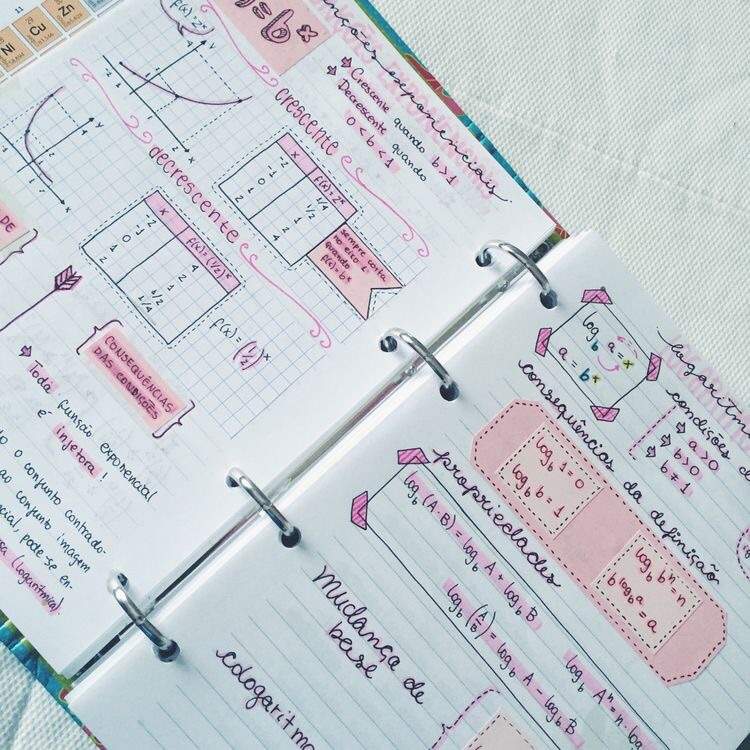 Ni
29
Cu
Zn
11
f(x)=2^x
y=b^x
funções exponenciais
→ Crescente quando b>1
→ Decrescente quando
0<b<1
crescente
x f(x)=2^x
-1 1/2
0 1
1 2
2 4
sempre corta
no eixo 1
quando
f(x)=b^x
decrescente
x f(x)=(1/2)^x
-2 4
-1 2
0 1
1 1/2
2 1/4
f(x)=(1/2)^x
DE
CONSEQUÊNCIAS
DAS CONDIÇÕES
→ Toda função exponencial
é injetora!
o conjunto contrado-
ao conjunto imagem
pode-se en-
(logarítmica).
log_b a = x
a = b^x
condições
→ a>0
→ b>0
→ b≠1
consequências da definição
log_b 1=0
log_b b=1
log_b b^n=n
b^log_b a=a
propriedades
log_b (A·B)=log_b A+log_b B
log_b (A/B)=log_b A-log_b B
log_b A^n=n·log
Mudança de
base
cologaritmo